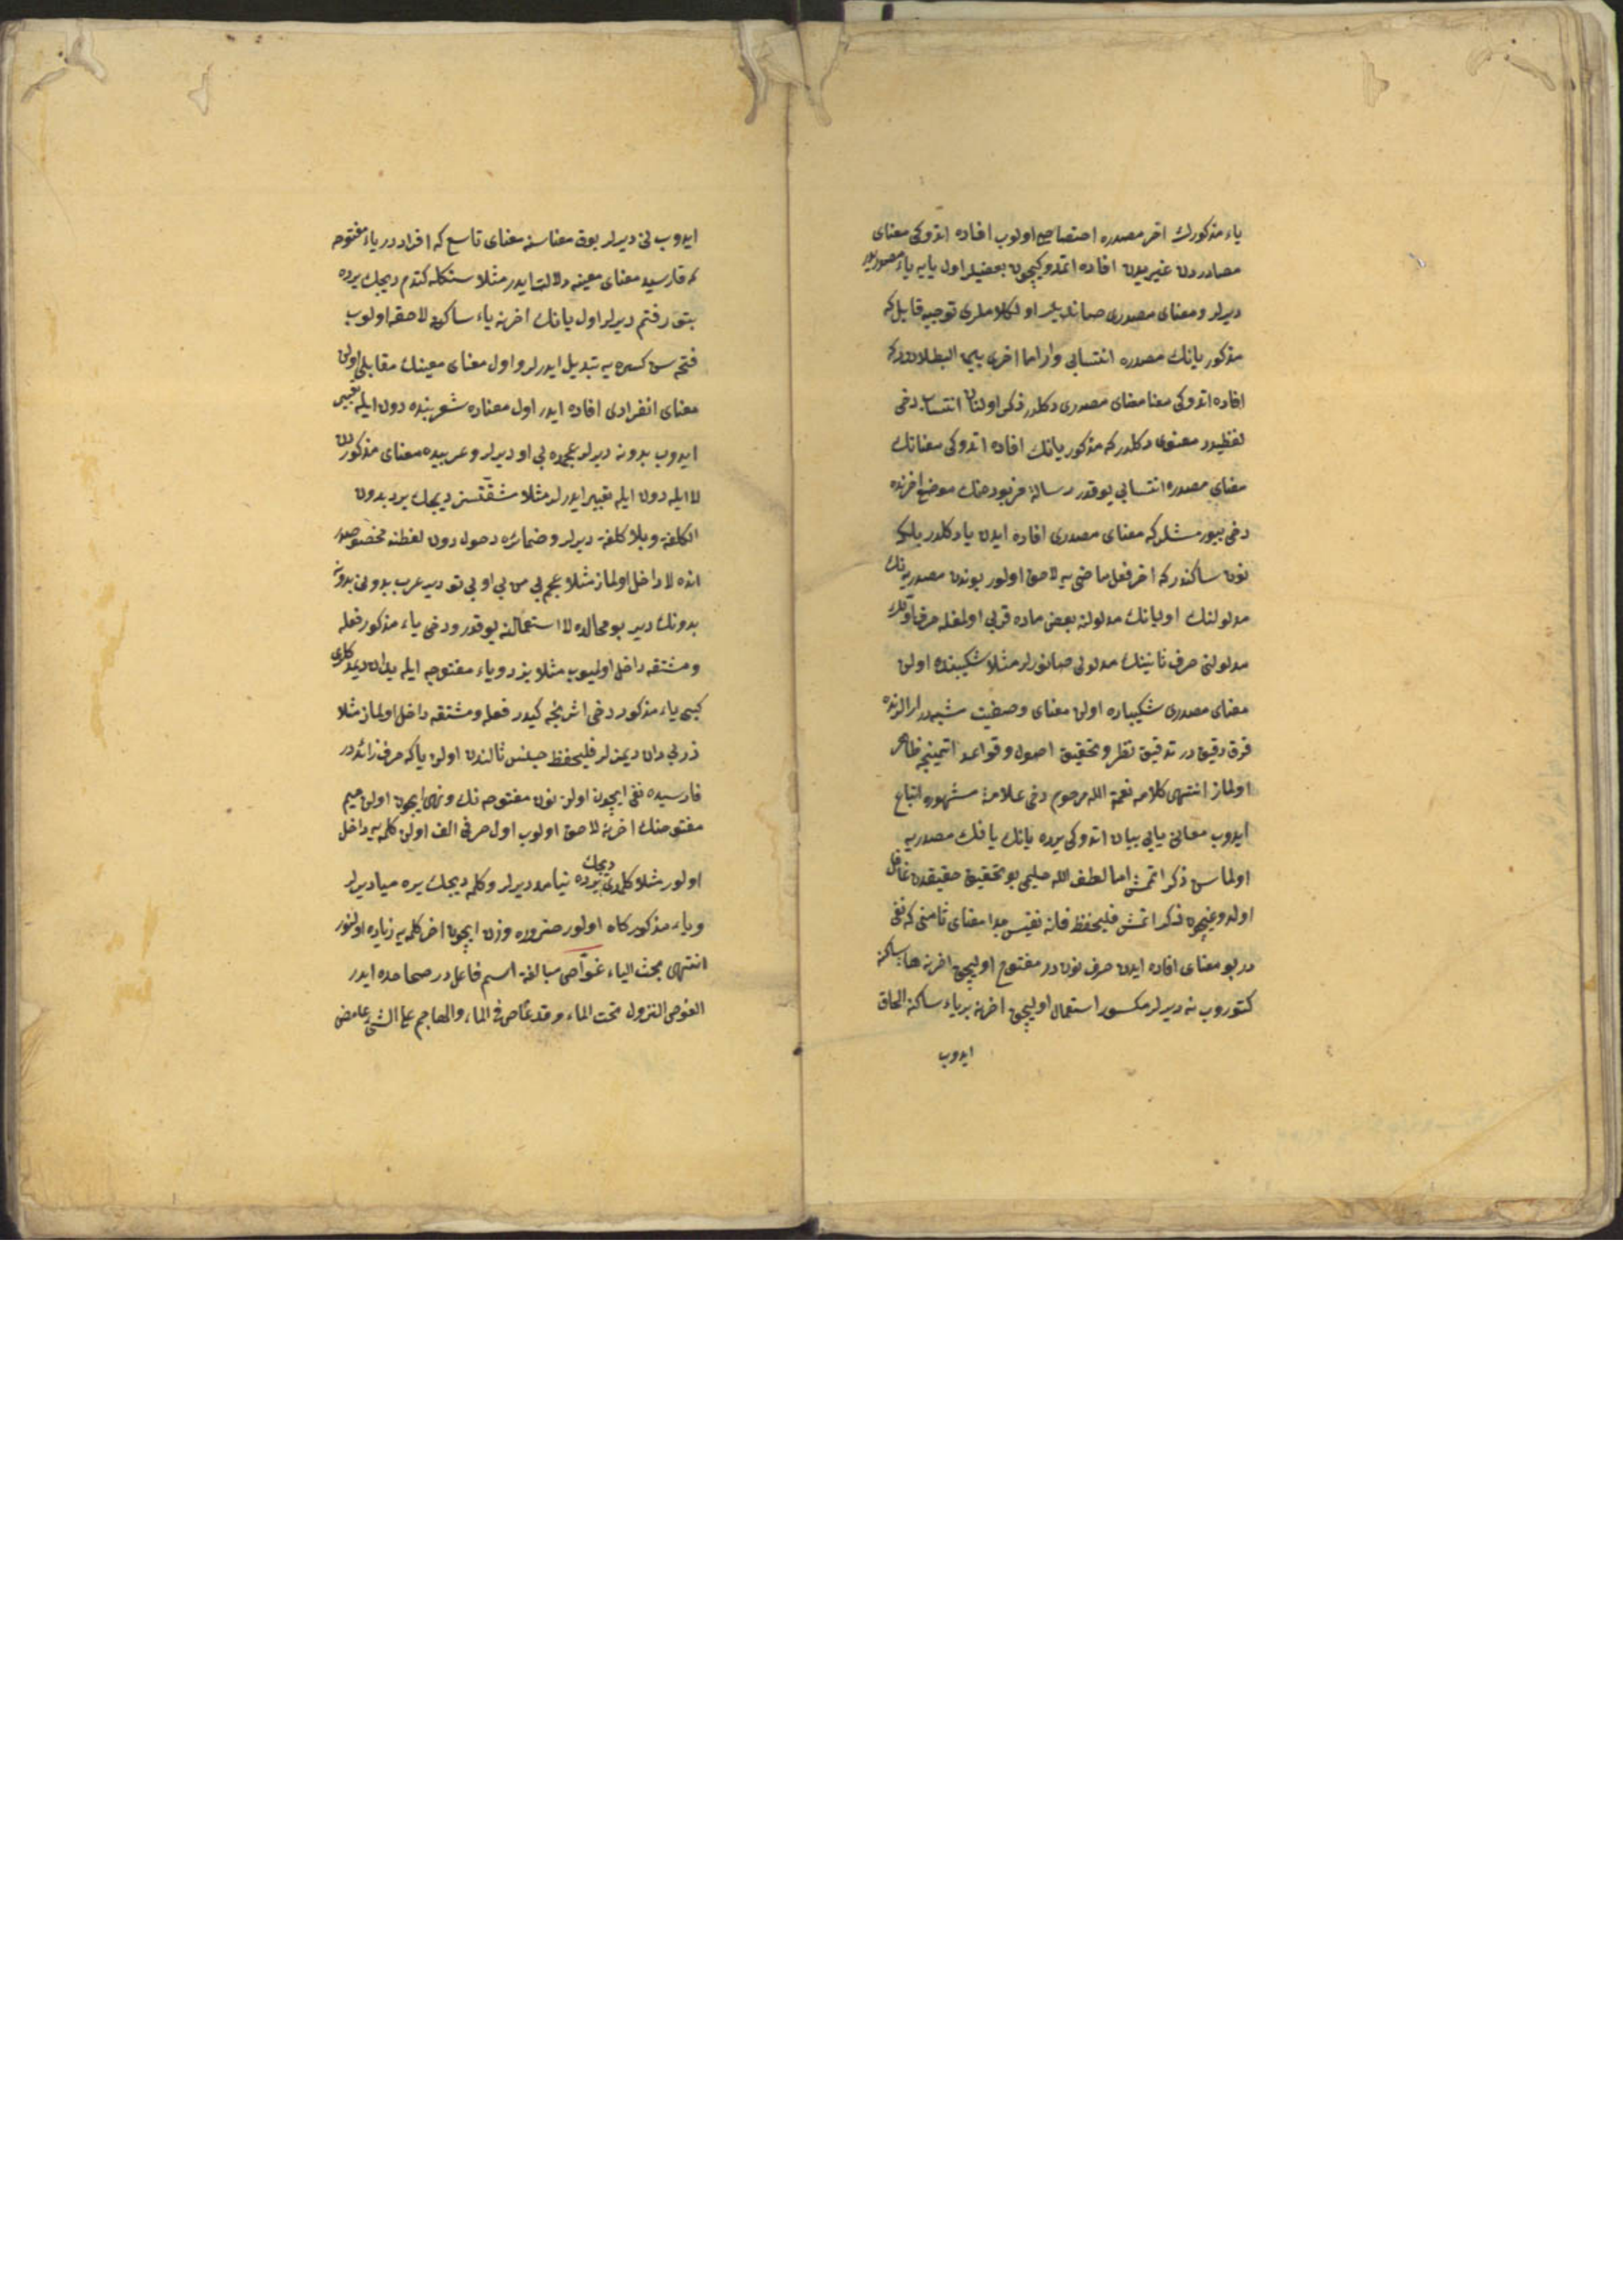 ياء مذكورك اخر مصدره اختصاصى اولوب افاده اتدوكى معناى
مصادردن غيريدن افاده اتمدوكيچون بعضيلر اول يايه ياء مصدريدر
ديرلر و معناى مصدرى صانديلر اول كلاملرى توجيه قابل كه
مذكور يانك مصدره انتسابى وار اما اخرى بيما البطلاندر كه
افاده اتدوكى معنا معناى مصدرى دكلدر ذكر اولنان انتساب دخى
لفظيدر معنوى دكلدر كه مذكور يانك افاده اتدوكى معنانك
معناى مصدره انتسابى يوقدر رساله مزبوره‌نك موضع اخرنده
دخى بيورمشلر كه معناى مصدرى افاده ايدن يا دكلدر بلكه
نون ساكندر كه اخر فعل ماضى يه لاحق اولور بوندن مصدريه‌نك
مدلولنك اول يانك مدلولنه بعض ماده قربى اولمغله حرف اولك
مدلولنى حرف ثانينك مدلولى صانورلر مثلا شكيبنده اولن
معناى مصدرى شكيباده اولن معناى وصفيت شبهه‌درلر الرنده
فرق دقيق در تدقيق نظر و تحقيق اصول و قواعد اتمينجه ظاهر
اولماز انتهى كلامه نعمة الله مرحوم دخى علامة مشهوره اتباع
ايدوب معانئ يايى بيان اتدوكى يرده يانك يا فك مصدريه
اولماسن ذكر اتمش اما لطف الله حليمى بو تحقيق حقيقدن غافل
اولدوغيچون ذكر اتمش فليحفظ فانه نفيس جدا معناى ثامنى كه نفى
در بو معناى افاده ايدن حرف نون در مفتوح اوليچق اخرنه هاء ساكنه
كتوروب نه ديرلر مكسور استعمال اوليچق اخرنه بر ياء ساكنه الحاق
ايدوب
ايدوب نى ديرلر يوق معناسنه معناى تاسع كه افراددر ياء مفتوحه
كه فارسيده معناى معينه دلالت ايدر مثلا سنكله كتدم ديجك يرده
بتو رفتم ديرلر اول يانك اخرنه ياء ساكن لاحقه اولوب
فتحه سن كسره يه تبديل ايدرلر و اول معناى معينك مقابلى اولن
معناى انفرادى افاده ايدر اول معناده شعر بنده دون ايله تعبير
ايدوب بدونه ديرلر عجمده بى او ديرلر و عربيده معناى مذكوردن
لا ايله دون ايله تعبير ايدرلر مثلا مشقتسز ديجك يرده بدون
الكلفة و بلا كلفة ديرلر و ضمائره دخول دون لفظنه مخصوصدر
انده لا داخل اولماز مثلا عجم بى من بى او بى تو دير عرب بدونى بدونه
بدونك دير بو محالده لا استعمالنه يوقدر و دخى ياء مذكور فعله
و مشتقه داخل اولميوب مثلا يزد و ياء مفتوحه ايله يدان ديمدكلرى
كبى ياء مذكور دخى اش نجه كيدر فعله و مشتقه داخل اولماز مثلا
ديمزلر فليحفظ جنس ثالثدن اولن يا كه حرف زائددر
فارسيده نفى ايچون اولن نون مفتوحه نك و نهى ايچون اولن ميم
مفتوحه‌نك اخرنه لاحق اولوب اول حرفى الف اولن كلمه يه داخل
اولور مثلا كلمدى ديجك يرده نيامد ديرلر و كلمه ديجك يرده ميا ديرلر
و ياء مذكور كاه اولور ضرورة وزن ايچون اخر كلمه يه زياده اولنور
انتهى بحث الياء غواص مبالغه اسم فاعلدر صحاحده ايدر
الغوص النزول تحت الماء و قد غاص فى الماء و الهاجم على الشئ غامض